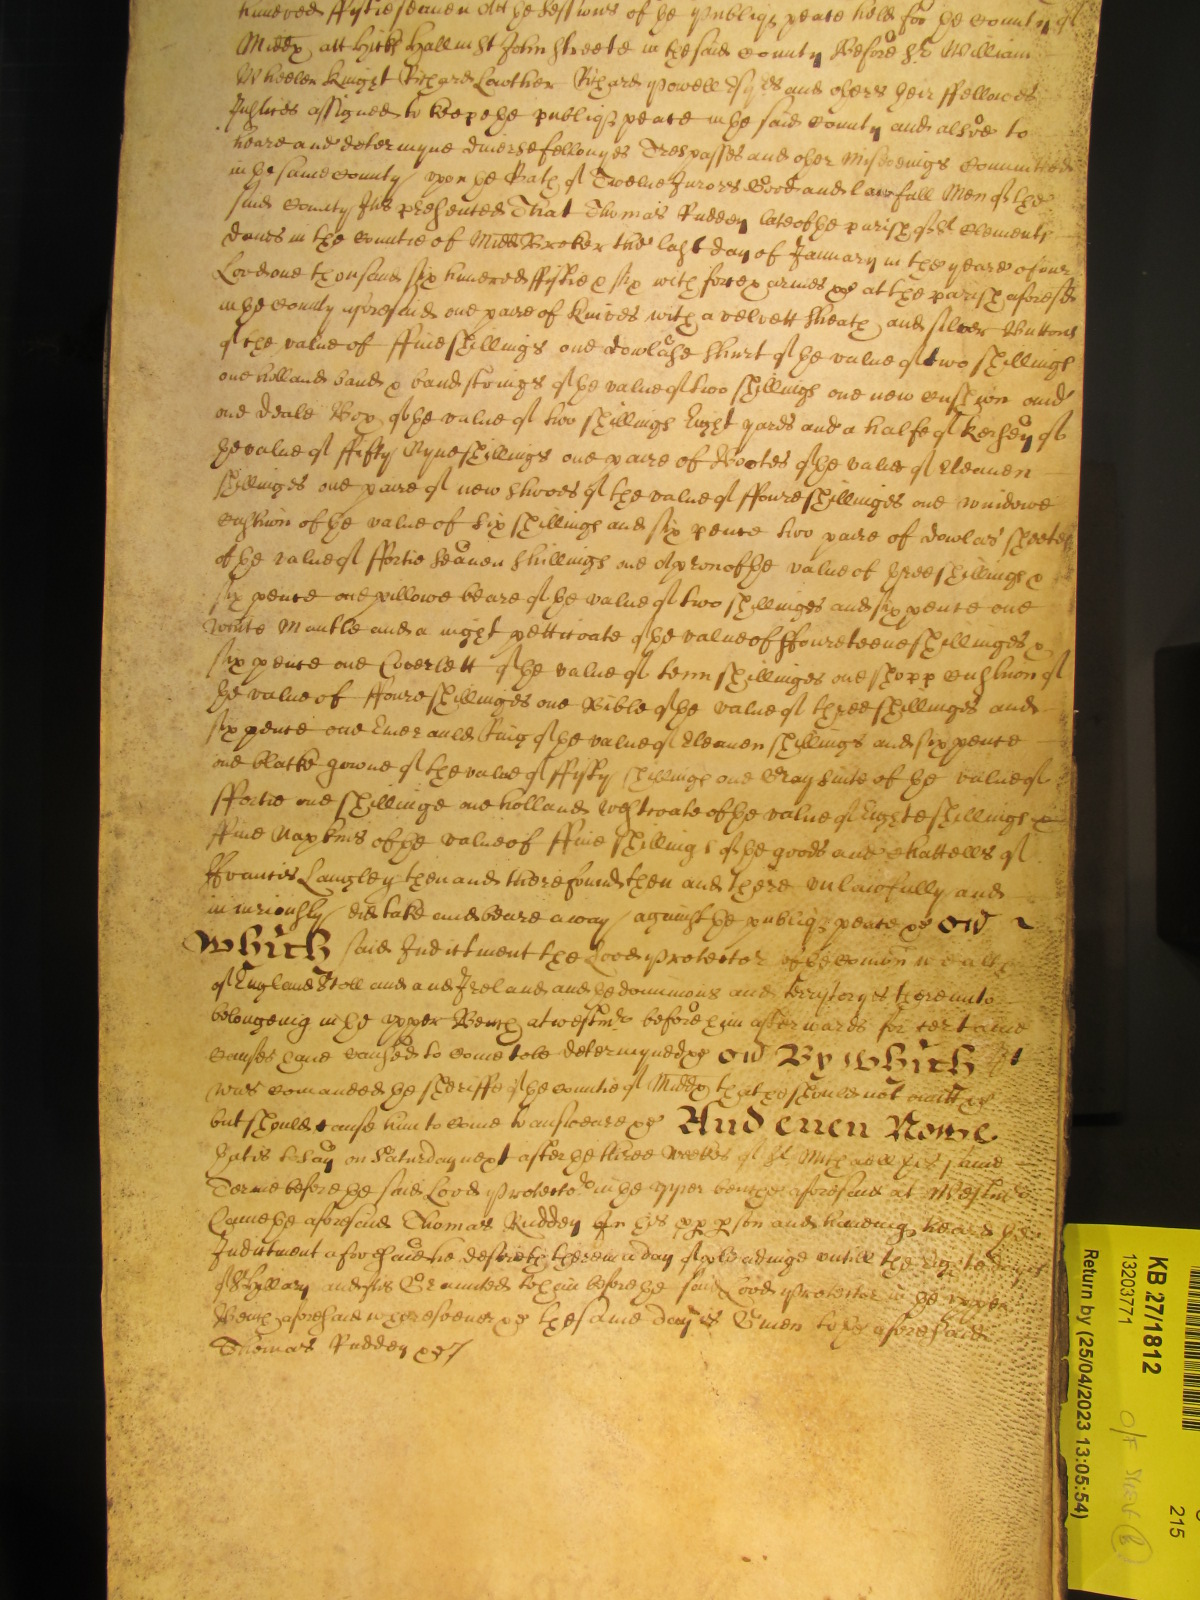 hundred ffiftie seaven Att the Sessions of the publiq peace held for the County of
Middx att Hicks Hall in St John Streete in the said County Before Sr William
Wheeler Knight Richard Lowther Richard Powell Esqrs and others their ffellowes
Justices assigned to keepe the publiq peace in the said County and alsoe to
heare and determyne diverse fellonyes Trespasses and other Misdoeings Committed
in the same County upon the Oath of Twelve Jurors Good and lawfull Men of the
said County It is presented That Thomas Rudden late of the parish of St Clements
danes in the Countie of Midd Broker the last day of January in the yeare of our
Lord one thousand six hundred ffiftie & six with force & armes &c at the parish aforesd
in the County aforesaid one paire of knives with a velvett sheath and silver Buttons
of the value of ffive shillings one dowlase shirt of the value of two shillings
one holland band & bandstrings of the value of two shillings one new cushion and
one deale Box of the value of two shillings Eight yards and a halfe of kersey of
the value of ffifty Nyne shillings one paire of Bootes of the value of Eleaven
shillinges one paire of new shooes of the value of ffoure shillinges one windowe
cushion of the value of Six shillings and six pence two paire of dowlas sheetes
of the value of ffortie Seaven shillings one Apron of the value of three shillings &
six pence one pillowe beare of the value of two shillinges and six pence one
white Mantle and a night petticoate of the value of ffoureteene shillinges &
six pence one Coverlett of the value of tenn shillinges one shopp cushion of
the value of ffoure shillinges one Bible of the value of three shillinges and
six pence one Emerauld Ring of the value of Eleaven shillings and six pence
one blacke gowne of the value of ffifty shillings one Gray suite of the value of
ffortie one shillinge one holland westcoate of the value of Eight shillings &
ffive Napkins of the value of ffive shillings of the goods and Chattells of
ffrancis Langley then and there found then and there unlawfully and
injuriously did take and beare away against the publiq peace &c
Which said Indictment the Lord Protector of the Comonwealth
of England Scotland and Ireland and the dominions and territoryes thereunto
belonging in the upper Bench at Westmr before him afterwards for certaine
causes have caused to come to be determyned &c By Which It
was comanded the Sheriffe of the Countie of Middx that he should not omitt &c
but should cause him to come to answeare &c And even Nowe
that is to say on Saturday next after the three weekes of St Michaell this same
Terme before the said Lord Protector in the upper bench aforesaid at Westmr
Came the aforesaid Thomas Rudden in his pper pson and haveing heard the
Indictment aforesaid he desireth therein a day of pleadinge untill the Eight dayes
of St Hillary and it is Graunted to him before the said Lord Protector in the upper
Bench aforesaid wheresoever &c the same day is Given to the aforesaid
Thomas Rudden &c
KB 27/1812
13203771
215
Return by (25/04/2023 13:05:54)